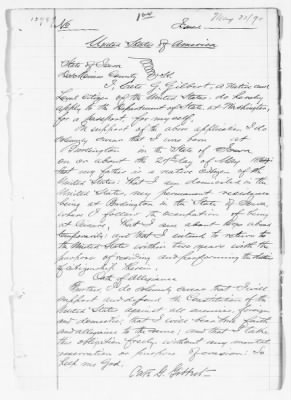 No
Issued May 23/90
United States of America
State of Iowa
Des Moines County } ss
I, Cate G. Gilbert, a Native and
Loyal Citizen of the United States, do hereby
apply to the Department of State at Washington,
for a passport for myself.
In support of the above application I do
solemnly swear that I was born at
Burlington in the State of Iowa
on or about the 21st day of May
that my father is a native citizen of the
United States; that I am domiciled in the
United States, my permanent residence
being at Burlington in the State of Iowa,
where I follow the occupation of being
at leisure, that I am about to go abroad
temporarily; and that I intend to return to
the United States within two years with the
purpose of residing and performing the duties
of citizenship therein.
Oath of Allegiance
Further, I do solemnly swear that I will
support and defend the Constitution of the
United States against all enemies, foreign
and domestic; that I will bear true faith
and allegiance to the same; and that I take
this obligation freely without any mental
reservation or purpose of evasion: So
help me God.
Cate G. Gilbert